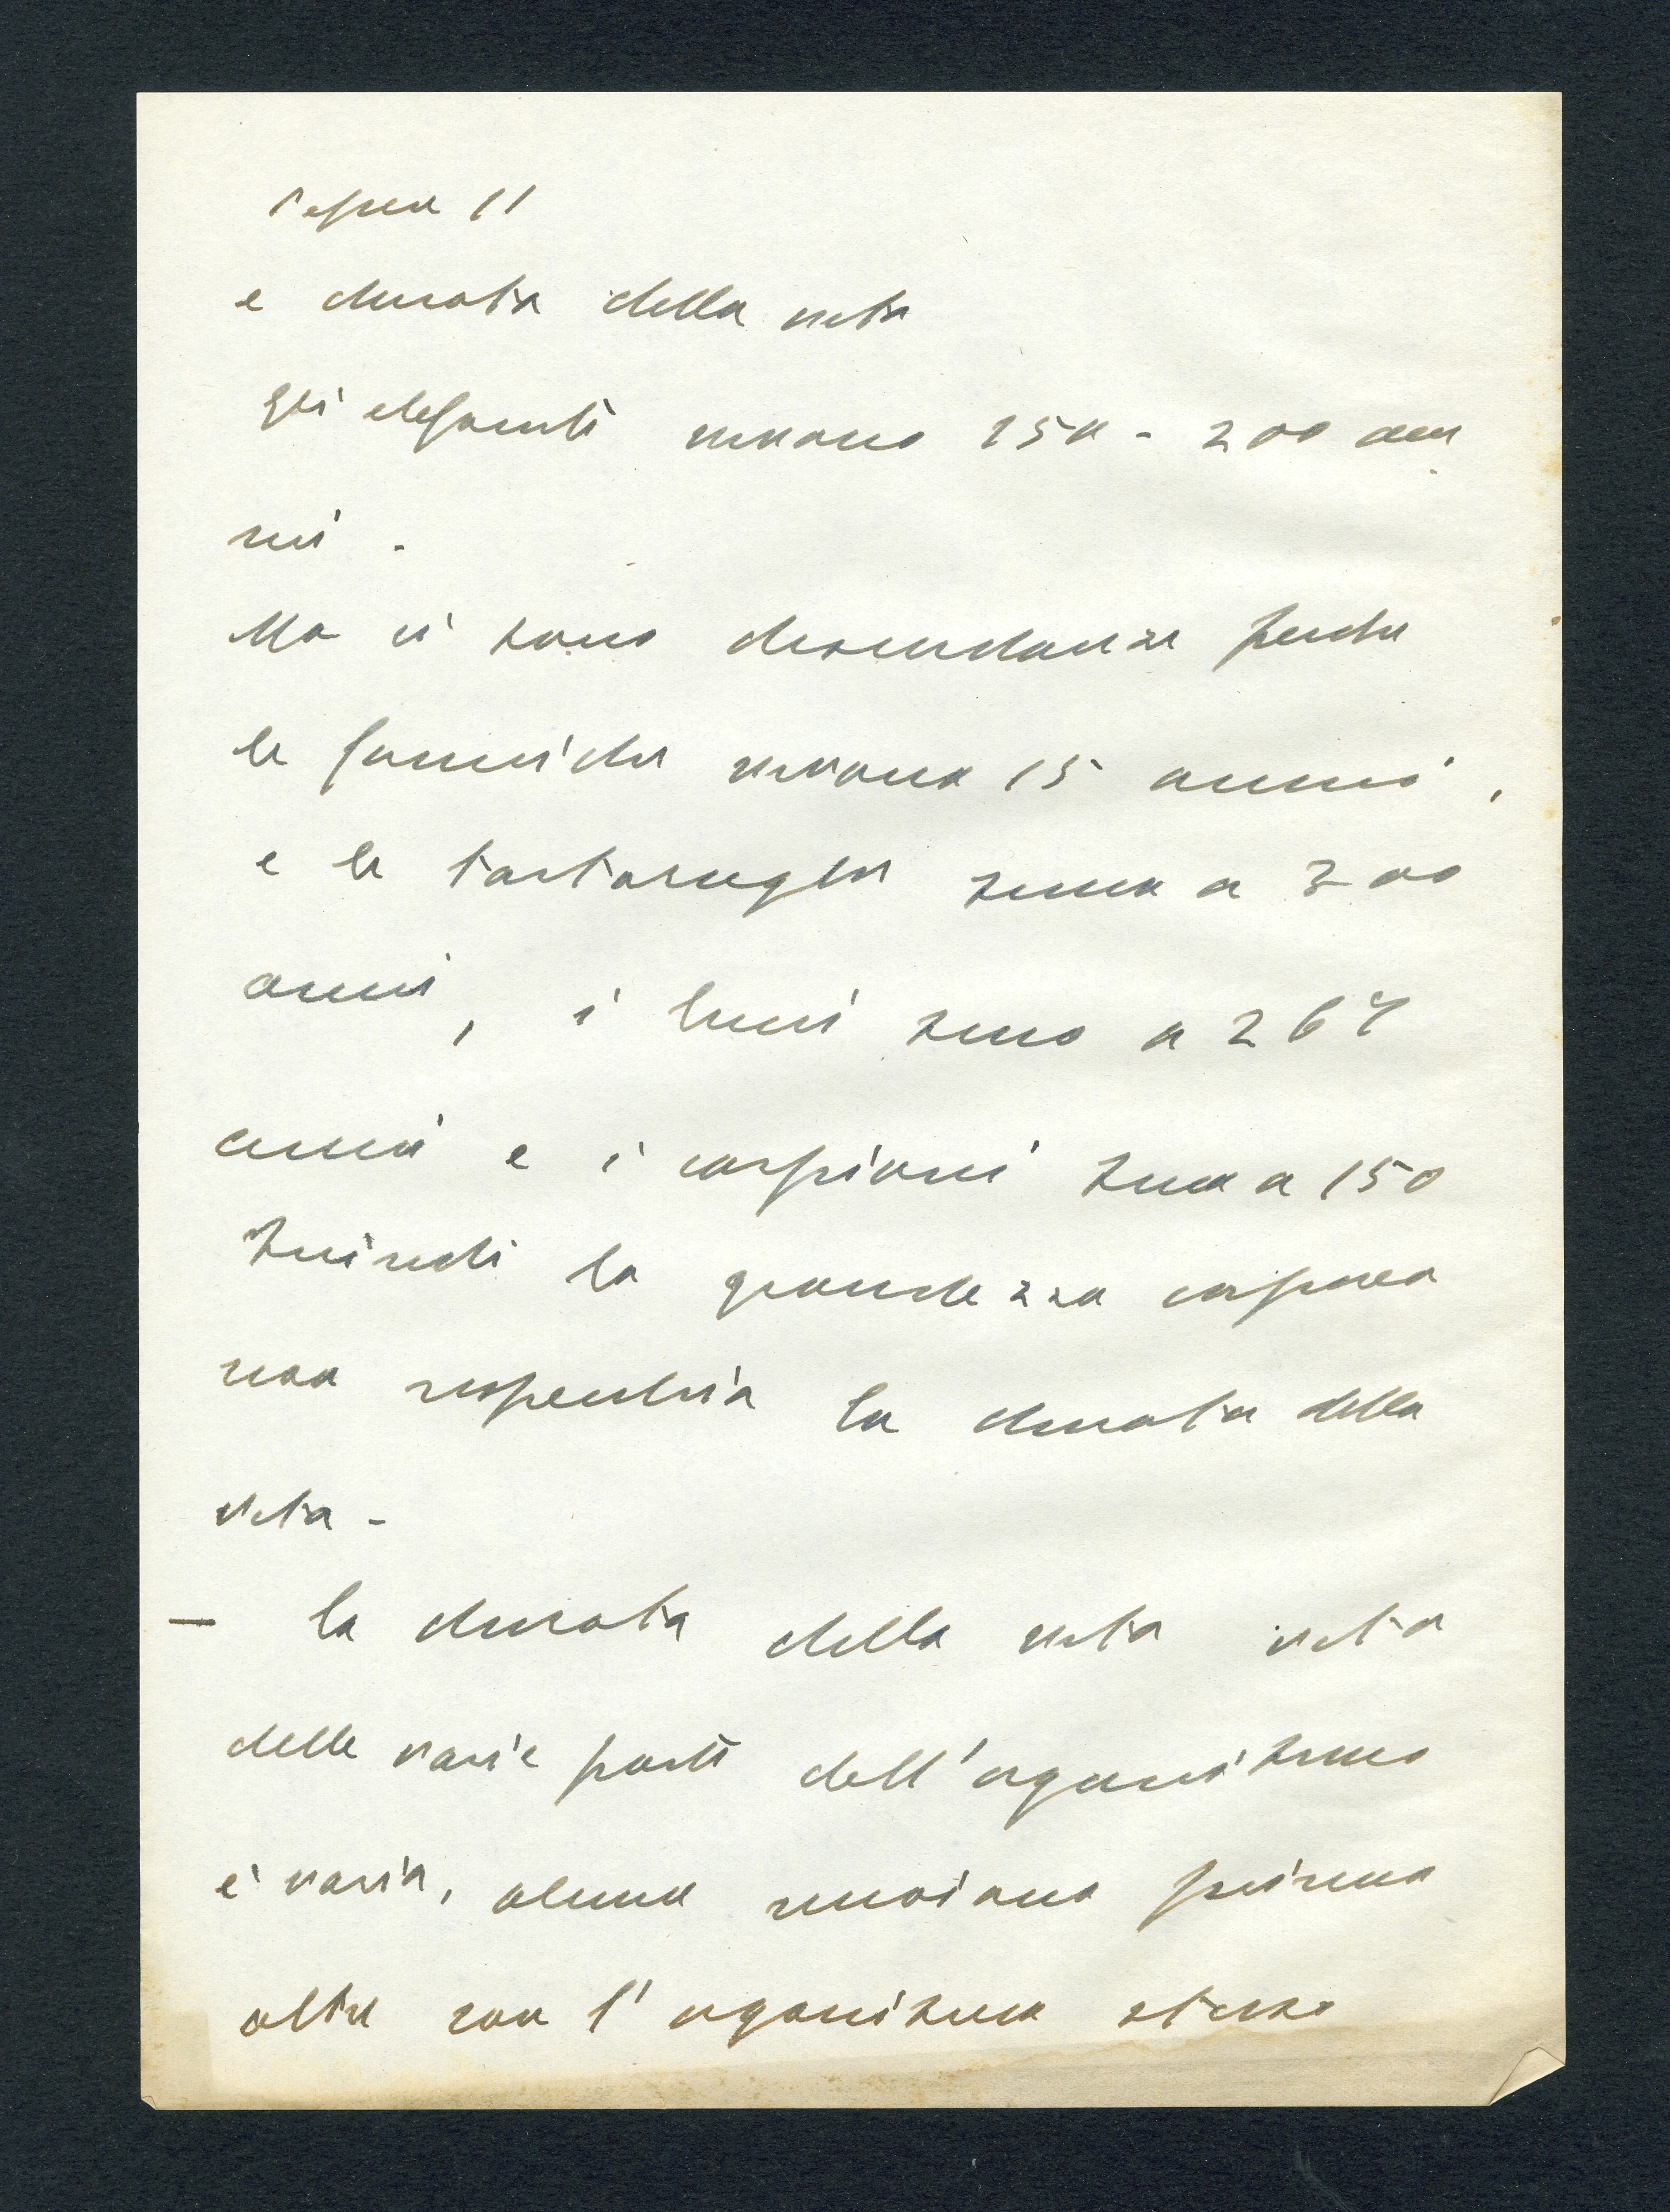 e durata della vita
gli elefanti vivono 150 - 200 an
ni .
Ma vi sono discordanze perche
le formiche vivono 15 anni ,
e le tartarughe sino a 300
anni , i lucci sino a 267
anni e i carpioni sino a 150
Quindi la grandezza corporea
non rispecchia la durata della
vita -
- la durata della vita vita
delle varie parti dell'organismo
e' varia, alcune muoiono prima
altre con l'organismo stesso